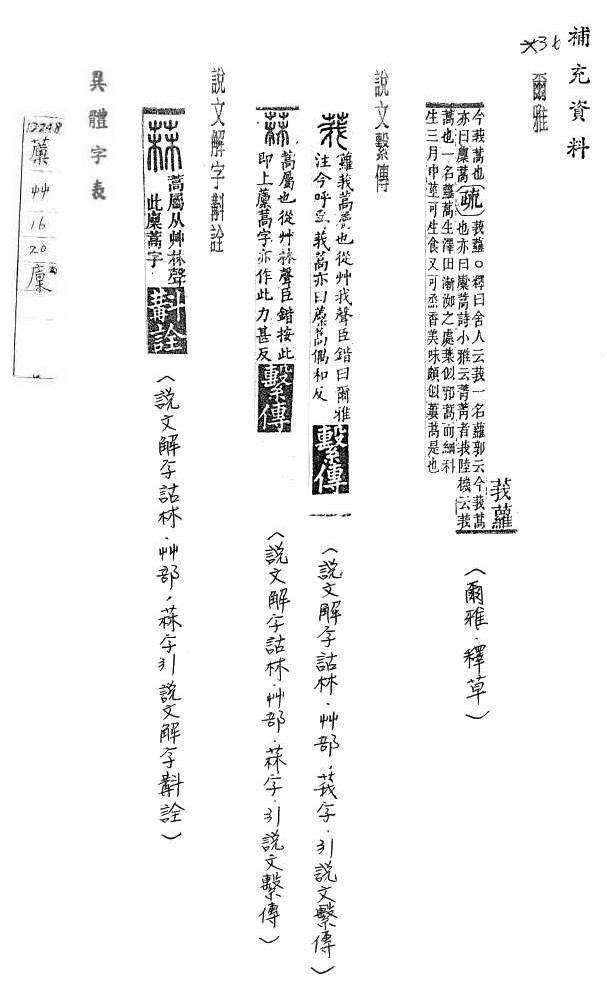 補充資料
36
爾雅
莪蘿
今莪蒿也疏莪蘿○釋曰舍人云莪一名蘿郭云今莪蒿
亦曰廩蒿也亦曰廩蒿詩小雅云菁菁者莪陸機云莪
蒿也一名蘿蒿生澤田漸洳之處葉似邪蒿而細科
生三月中莖可生食又可烝香美味頗似蔞蒿是也
〈爾雅．釋草〉
說文繫傳
莪
蘿莪蒿屬也從艸我聲臣鍇曰爾雅
注今呼莪蒿亦曰藨蒿偶和反
繫傳
〈說文解字詁林．艸部．莪字．引說文繫傳〉
菻
蒿屬也從艸林聲臣鍇按此
即上藨蒿字亦作此力甚反
繫傳
〈說文解字詁林．艸部．菻字．引說文繫傳〉
說文解字斠詮
菻
蒿屬从艸林聲
此廩蒿字
斠詮
〈說文解字詁林．艸部．菻字引說文解字斠詮〉
異體字表
12248
艸
16
20
廩